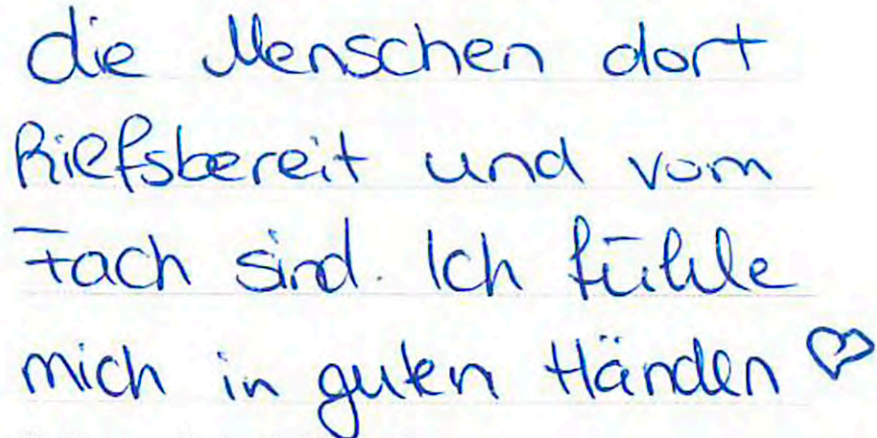 die Menschen dort
hielfsbereit und vom
Fach sind. Ich fühle
mich in guten Händen ♡